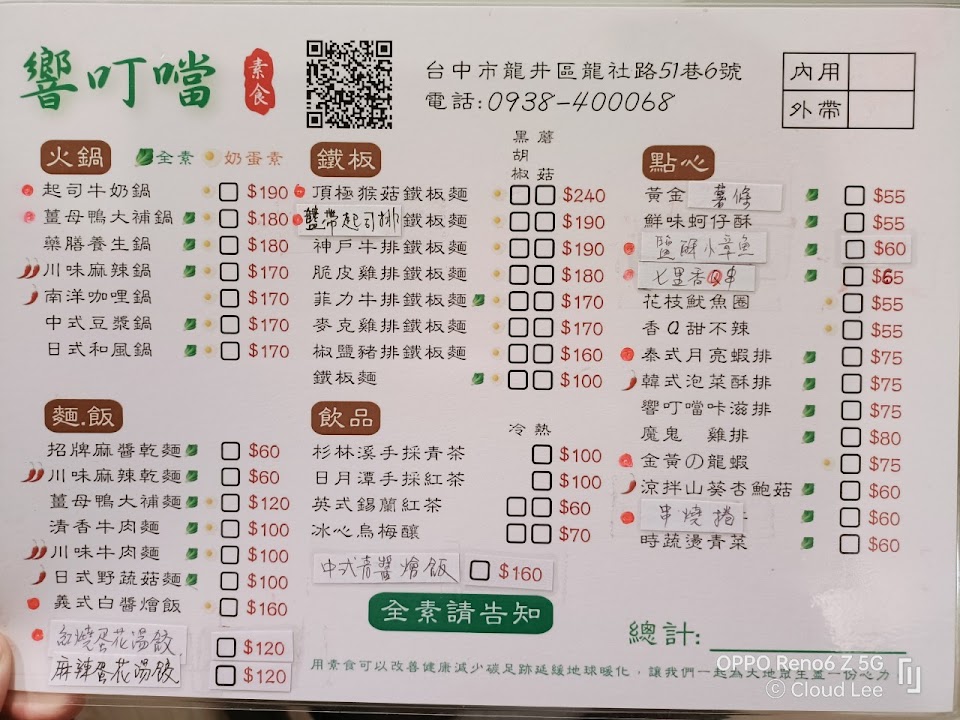 響叮噹 素食
台中市龍井區龍社路51巷6號
電話:0938-400068
內用
外帶
火鍋 全素 奶蛋素
起司牛奶鍋 $190
薑母鴨大補鍋 $180
藥膳養生鍋 $180
川味麻辣鍋 $170
南洋咖哩鍋 $170
中式豆漿鍋 $170
日式和風鍋 $170
麵.飯
招牌麻醬乾麵 $60
川味麻辣乾麵 $60
薑母鴨大補麵 $120
清香牛肉麵 $100
川味牛肉麵 $100
日式野蔬菇麵 $100
義式白醬燴飯 $160
紅燒蛋花湯餃 $120
麻辣蛋花湯餃 $120
鐵板 黑胡椒 蘑菇
頂極猴菇鐵板麵 $240
起司排鐵板麵 $190
神戶牛排鐵板麵 $190
脆皮雞排鐵板麵 $180
菲力牛排鐵板麵 $170
麥克雞排鐵板麵 $170
椒鹽豬排鐵板麵 $160
鐵板麵 $100
飲品 冷 熱
杉林溪手採青茶 $100
日月潭手採紅茶 $100
英式錫蘭紅茶 $60
冰心烏梅釀 $70
中式青醬燴飯 $160
全素請告知
點心
黃金薯條 $55
鮮味蚵仔酥 $55
鹽酥小章魚 $60
七里香Q串 $65
花枝魷魚圈 $55
香Q甜不辣 $55
泰式月亮蝦排 $75
韓式泡菜酥排 $75
響叮噹咔滋排 $75
魔鬼 雞排 $80
金黃の龍蝦 $75
涼拌山葵杏鮑菇 $60
串燒捲 $60
時蔬燙青菜 $60
總計:
用素食可以改善健康減少碳足跡延緩地球暖化,讓我們一起為大地眾生盡一份心力
OPPO Reno6 Z 5G
© Cloud Lee